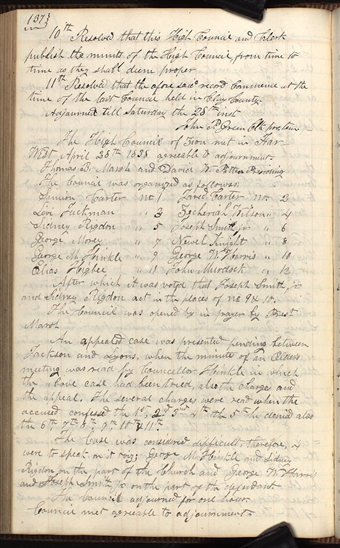 137
10th Resolved that this High Council and Clerk
publish the minuts of the High Council from time to
time as they shall deem proper
11th Resolved that the afore said record commence at the
time of the last Council held in Clay County.
Adjourned till Saturday the 28th inst
John P. Green Clk protem
The High Council of Zion met in Far
West, April 28th 1838 agreeable to adjournment.
Thomas B. Marsh and David W. Patten Presiding
The Council was organized as follows:
Simeon Carter no 1 Jared Carter no. 2
Levi Hickman " 3 Zacheriah Wilson " 4
Sidney Rigdon " 5 Joseph Smith, jr " 6
George Morey " 7 Newel Knight " 8
George M. Hinkle " 9 George W. Harris " 10
Elias Higbee " 11 John Murdock " 12
After which it was voted that Joseph Smith jr
and Sidney Rigdon act in the places of no 9 & 10.
The Council was opened by in prayer by Prest
Marsh
An appealed case was presented pending between
Jackson and Lyons, when the minuts of an Elders
meeting was read by Councellor Hinkle in which
the above case had been tried, also the charges and
the appeal. The several charges were read when the
accused confessed the 1st, 2nd 3rd 4th the 5th he denied also
the 6th 7th 8th 9th 10th & 11th.
The Case was considered difficult, therefore, 4
were to speak on it viz; George M. Hinkle and Sidney
Rigdon on the part of the Church and George W. Harris
and Joseph Smith jr on the part of the defendant
The council adjourned for one hour.
Council met agreeable to adjournment